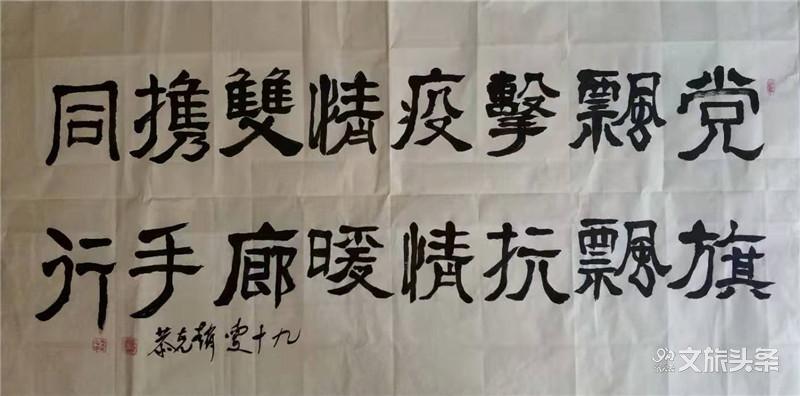 党旗
飄飄
擊抗
疫情
情暖
雙廊
携手
同行
九十叟克恭
文旅头条